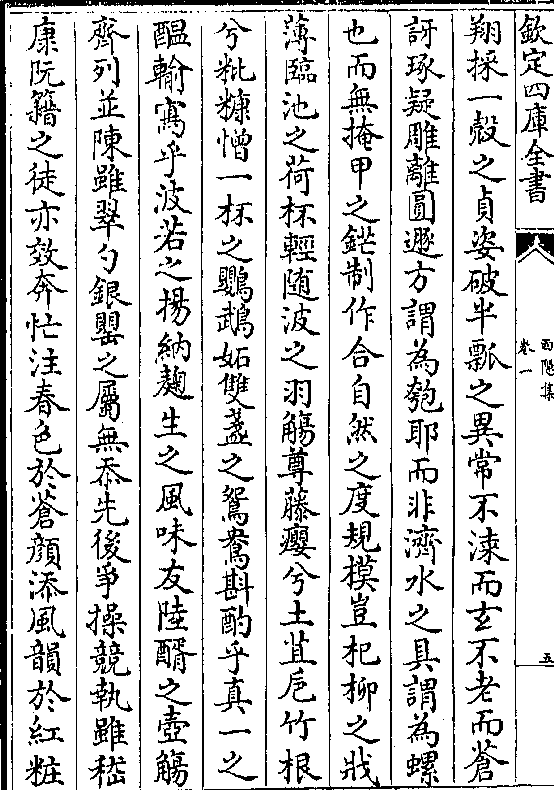 欽定四庫全書
酉陽集
卷一
五
翔採一殼之貞姿破半瓢之異常不漆而玄不老而蒼
訝琢疑雕離圓遯方謂為匏耶而非濟水之具謂為螺
也而無掩甲之鋩制作合自然之度規模豈杞柳之戕
薄臨池之荷杯輕随波之羽觴尊藤癭兮土苴巵竹根
兮粃糠憎一杯之鸚鵡妬雙盞之鴛鴦斟酌乎真一之
醖輸寫乎波若之揚納麴生之風味友陸醑之壺觴
齊列並陳雖翠勺銀罌之屬無忝先後爭操競執雖嵇
康阮籍之徒亦效奔忙注春色於蒼顔添風韻於紅粧